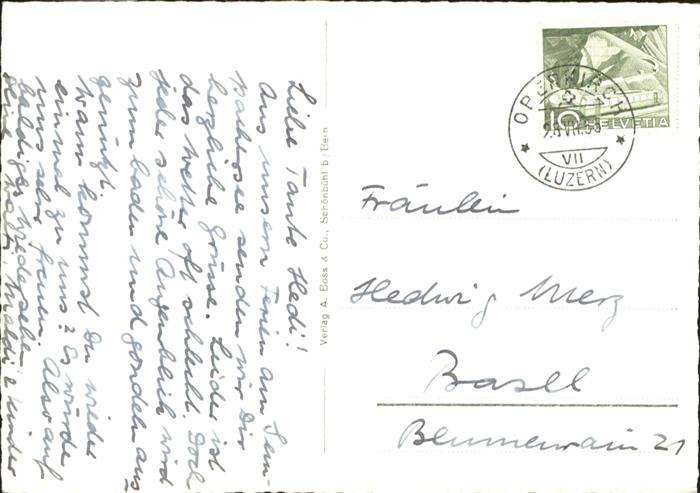 Liebe Tante Hedi!
Aus unsern Ferien am Sem-
pachersee senden wir Dir
herzliche Grüsse. Leider ist
das Wetter oft schlecht. Doch
jeder schöne Augenblick wird
zum baden und gondeln aus
genützt.
Wann kommst Du wieder
einmal zu uns? Es würde
uns sehr freuen. Also auf
baldiges Wiedersehen
Kinder
Verlag A. Boss & Co., Schönbühl b/Bern
OBERKIRCH
VII.53
VII
(LUZERN)
10
HELVETIA
Fräulein
Hedwig Merz
Basel
Blumenrain 21